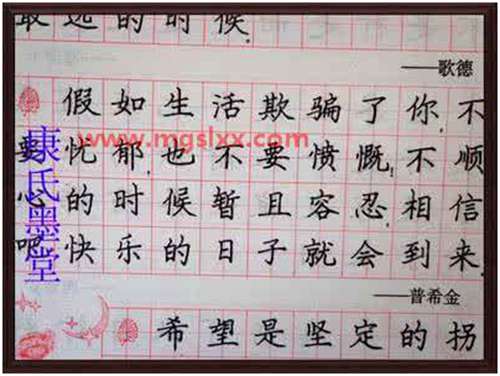 远的时候.
——歌德
假如生活欺骗了你,不
要忧郁,也不要愤慨,不顺
心的时候暂且容忍,相信
吧,快乐的日子就会到来.
——普希金
希望是坚定的拐
www.mgslxx.com
康氏墨堂